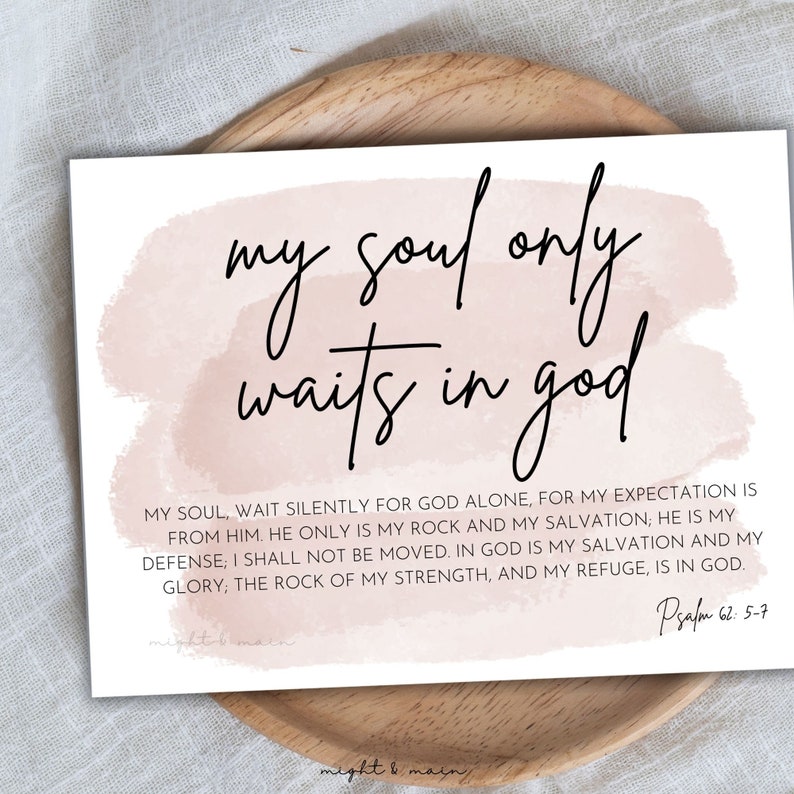 my soul only
waits in god
MY SOUL, WAIT SILENTLY FOR GOD ALONE, FOR MY EXPECTATION IS
FROM HIM. HE ONLY IS MY ROCK AND MY SALVATION; HE IS MY
DEFENSE; I SHALL NOT BE MOVED. IN GOD IS MY SALVATION AND MY
GLORY; THE ROCK OF MY STRENGTH, AND MY REFUGE, IS IN GOD.
Psalm 62: 5-7
might & main
might & main